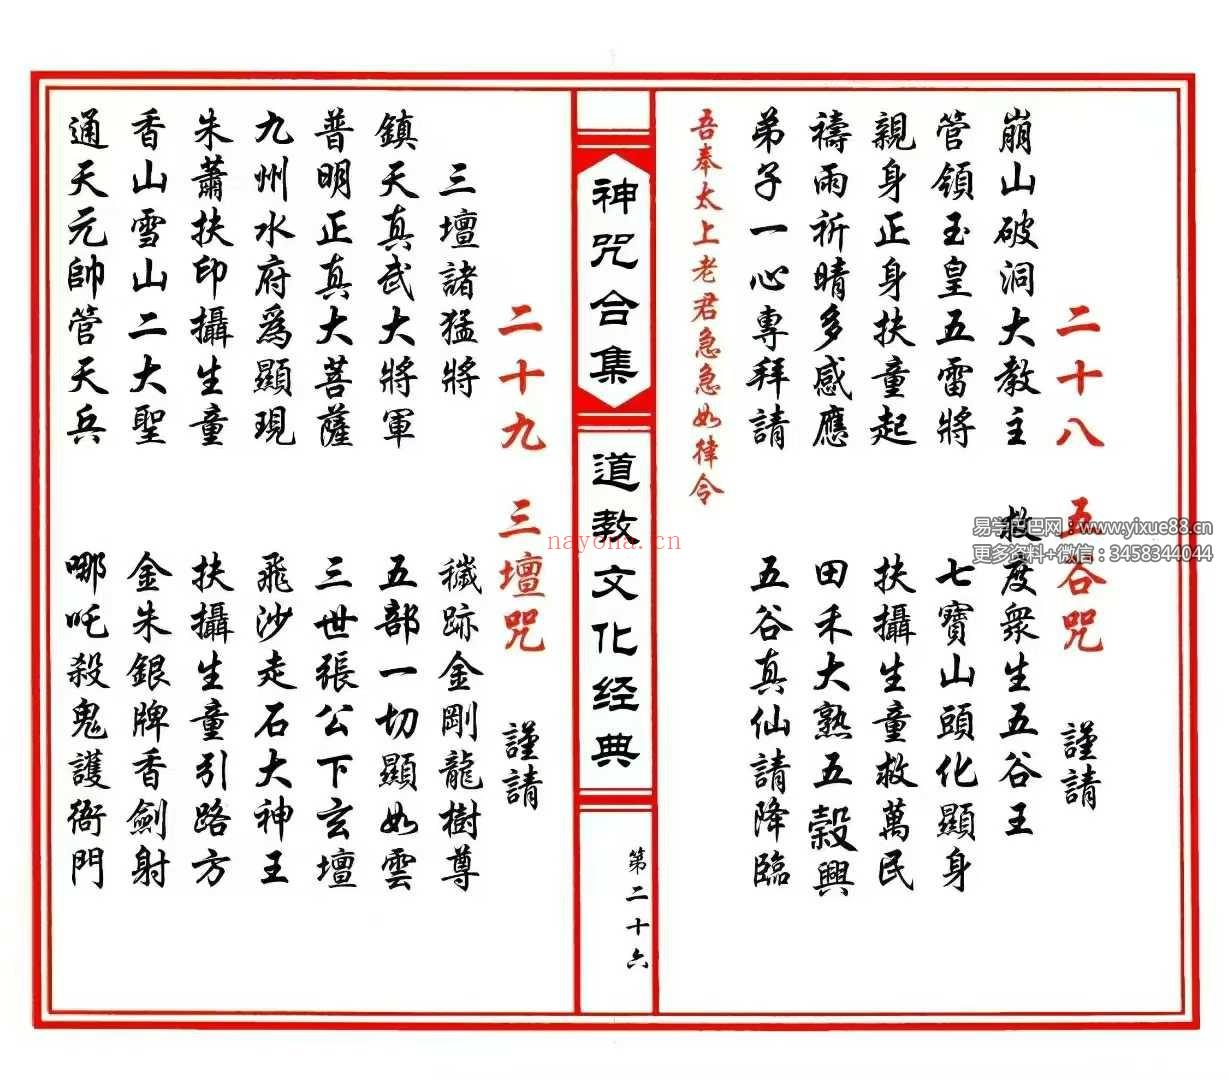 二十八 五谷咒 謹請
崩山破洞大教主 救度眾生五谷王
管領玉皇五雷將 七寶山頭化顯身
親身正身扶童起 扶攝生童救萬民
禱雨祈晴多感應 田禾大熟五穀興
弟子一心專拜請 五谷真仙請降臨
吾奉太上老君急急如律令
神咒合集
道教文化经典
第二十六
二十九 三壇咒 謹請
三壇諸猛將 穢跡金剛龍樹尊
鎮天真武大將軍 五部一切顯如雲
普明正真大菩薩 三世張公下玄壇
九州水府為顯現 飛沙走石大神王
朱蕭扶印攝生童 扶攝生童引路方
香山雪山二大聖 金朱銀牌香劍射
通天元帥管天兵 哪吒殺鬼護衙門
nayona.cn
易学巴巴网：www.yixue88.cn
更多资料+微信：3458344044